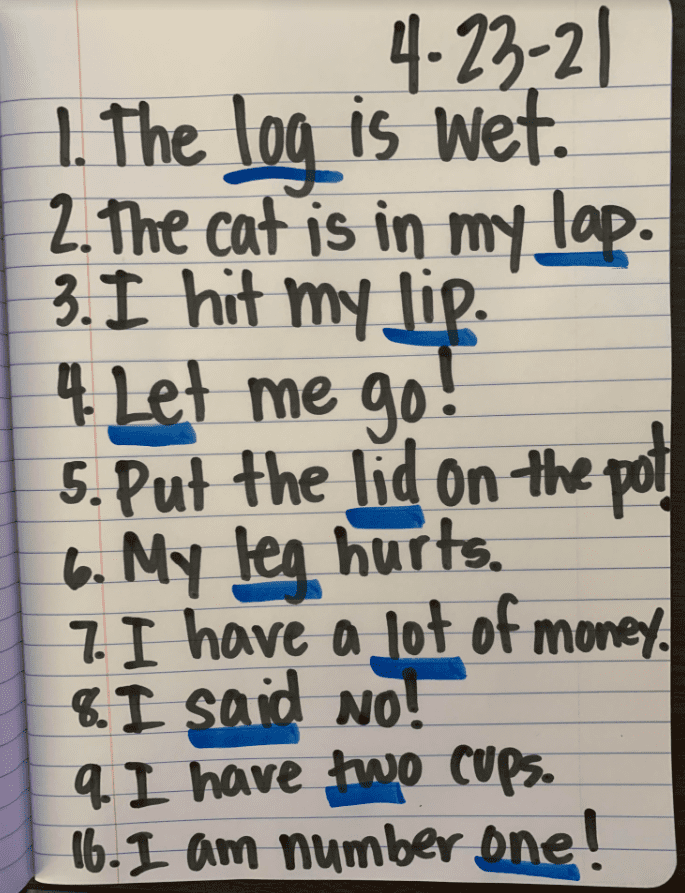 4-23-21
1. The log is wet.
2. The cat is in my lap.
3. I hit my lip.
4. Let me go!
5. Put the lid on the pot.
6. My leg hurts.
7. I have a lot of money.
8. I said NO!
9. I have two cups.
10. I am number one!